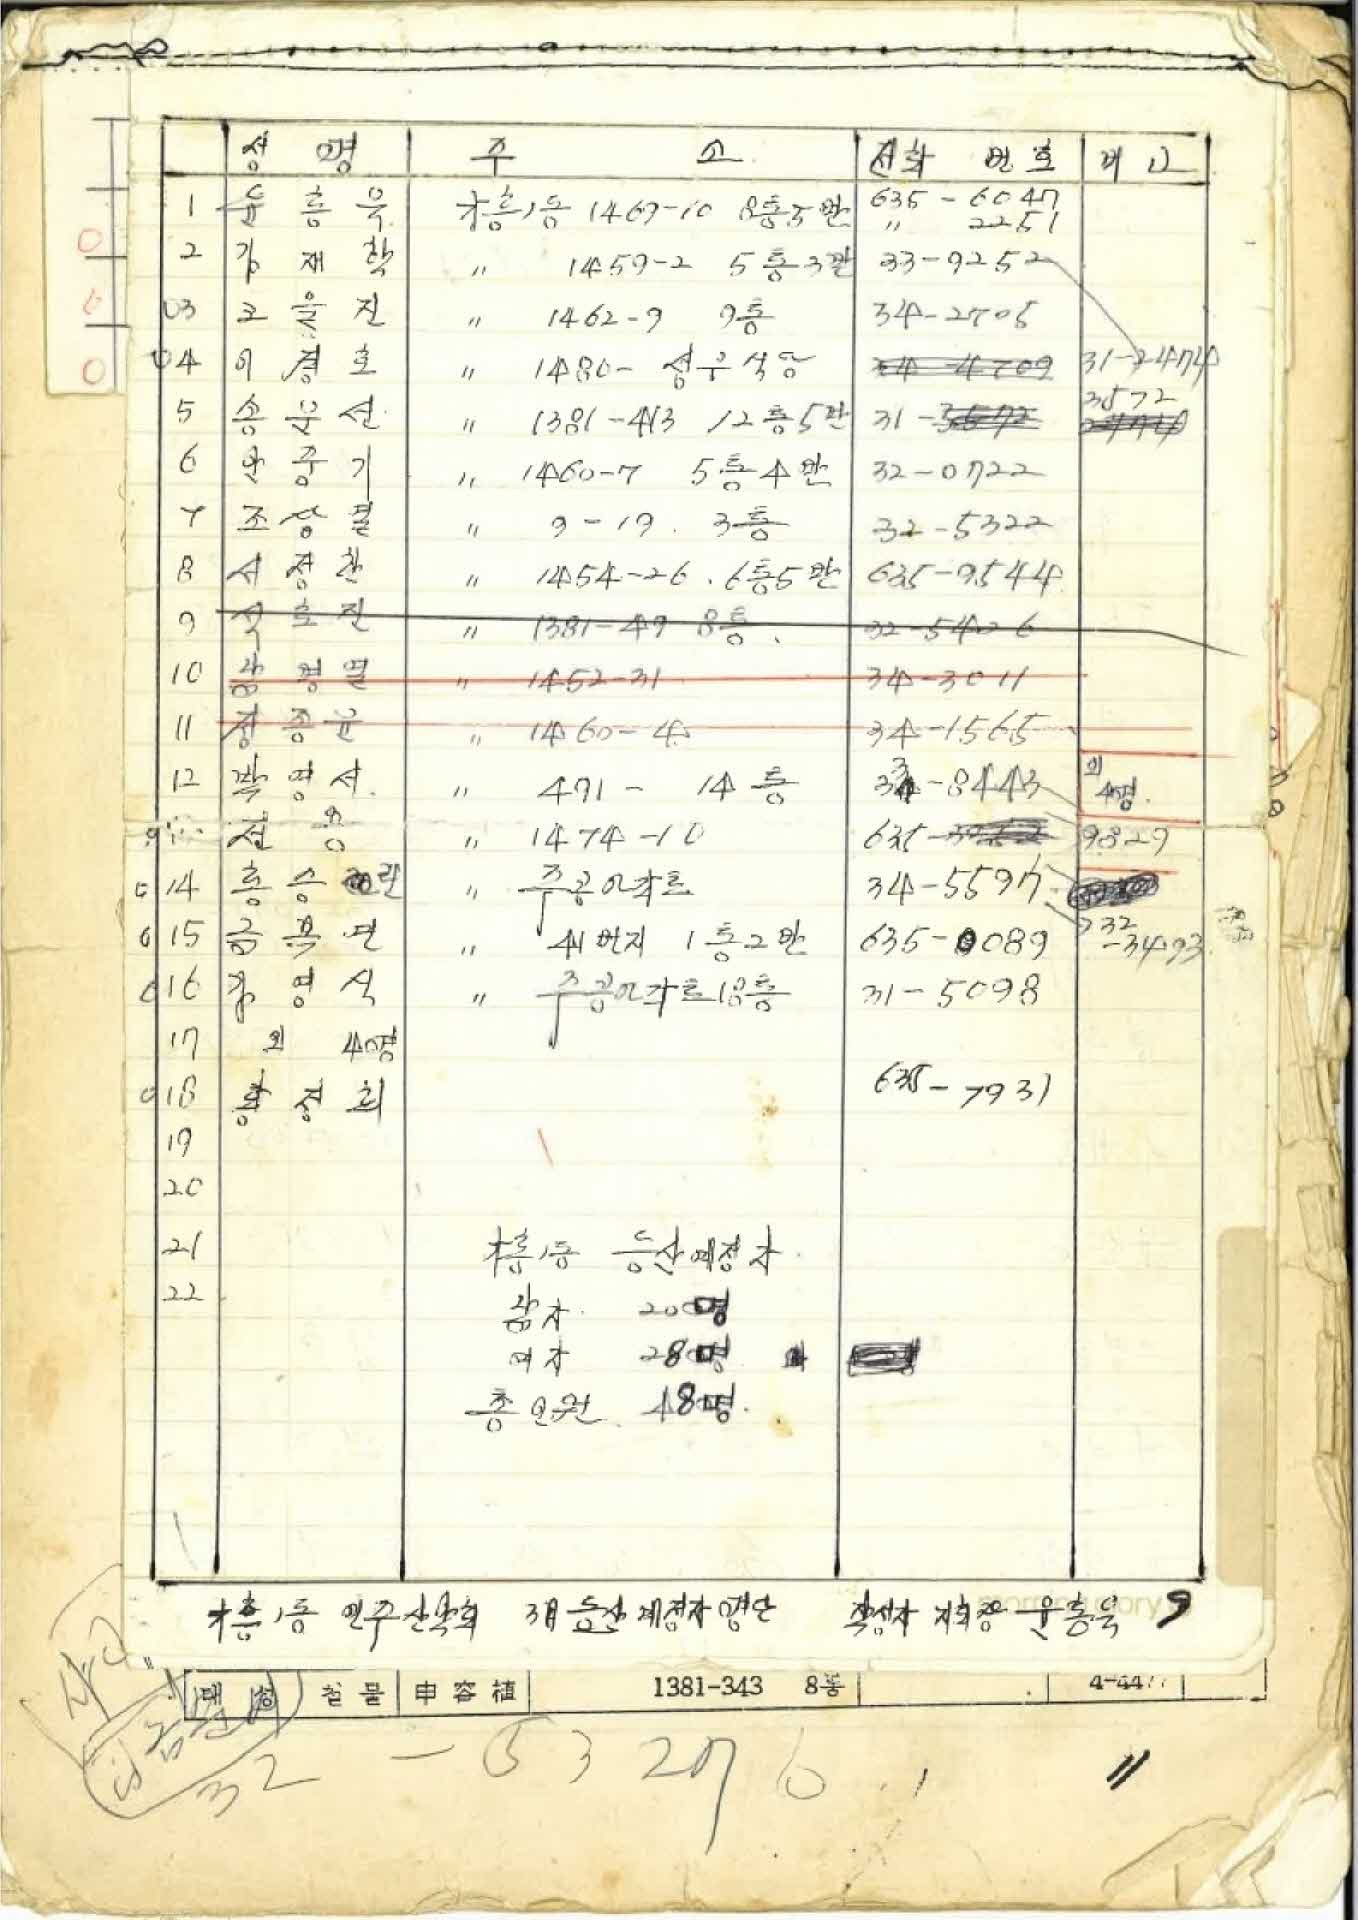 성 명 주 소 전화 번호 비고
1 윤 흥 욱 가흥1동 1469-10 8통5반 635-6047
〃 2251
2 김 재 학 〃 1459-2 5통3반 33-9252
3 고 을 진 〃 1462-9 9통 34-2705
4 이 경 호 〃 1480- 성우식당 34-4709 31-2474
5 송 문 선 〃 1381-413 12통5반 31-3572 3572
6 안 중 기 〃 1460-7 5통4반 32-0722
7 조 상 열 〃 9-19. 3통 32-5322
8 서 정 찬 〃 1454-26. 6통5반 635-9544
9 석 호 진 〃 1381-49 8통. 32-5426
10 김 경 열 〃 1452-31 34-3011
11 정 종 윤 〃 1460-4 34-1565
12 곽 영 서 〃 491- 14통 33-8443 외 4명.
전 용 〃 1474-10 635- 9829
14 홍 승 란 〃 주공아파트 34-5597
15 금 복 연 〃 41번지 1통2반 635-0089 32-3493
16 김 영 식 〃 주공아파트18통 31-5098
17 외 4명
18 황 정 희 635-7931
19
20
21 가흥1동 등산예정자
22 남자 20명
여자 28명
총인원 48명.
가흥1동 민주산악회 3月 등산예정자명단 작성자 지회장 윤흥욱 9
철물 申容植 1381-343 8통
32-53276
〃